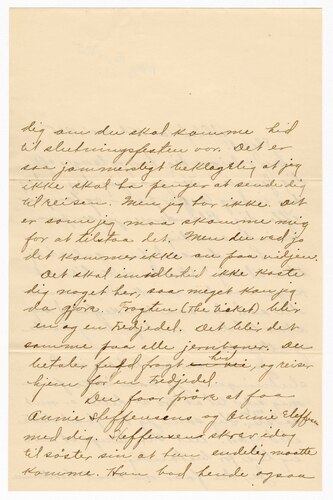 dig om du skal komme hid
til slutningsfesten vor. Det er
saa jammerligt beklagelig at jeg
ikke skal ha penger at sende dig
til reisen. Men jeg har ikke. Det
er som jeg maa skamme mig
for at tilstaa det. Men du ved jo
det kommer ikke an paa viljen.
Det skal imidlertid ikke koste
dig noget her, saa meget kan jeg
da gjøre. Fragten (The Ticket) blir
en og en Tredjedel. Det blir det
samme paa alle jernbaner. Du
betaler fuld fragt hid, og reiser
hjem for en Tredjedel.
Du faar prøve at faa
Annie Steffensens og Annie
med dig. Steffensen skrev idag
til søster sin at hun endelig maatte
komme. Han bad hende ogsaa